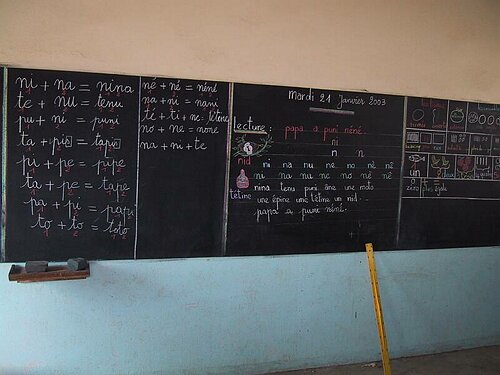 ni + na = nina
te + nu = tenu
pu + ni = puni
ta + pis = tapis
pi + pe = pipe
ta + pe = tape
pa + pi = papi
to + to = toto
né + né = néné
na + ni = nani
té + ti + ne = tétine
no + ne = none
na + ni + te
Mardi 21 Janvier 2003
lecture : papa a puni néné.
ni
n n
nid
ni na nu ne no né nê
ni na nu ne no né nê
nina tenu puni âne une moto
tétine une épine une tétine un nid.
papa a puni néné.
un
zéro